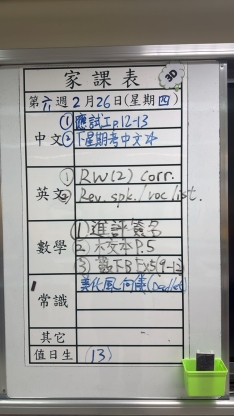 家課表
3D
第六週2月26日(星期四)
中文
①應試工p.12-13
②下星期考中文本
英文
①RW(2) corr.
②Rev. spk./voc list.
數學
(1)進評簽名
(2)大文本P.5
(3)數下B Ex5(9-12)
常識
美化風向儀
其它
值日生
(13)